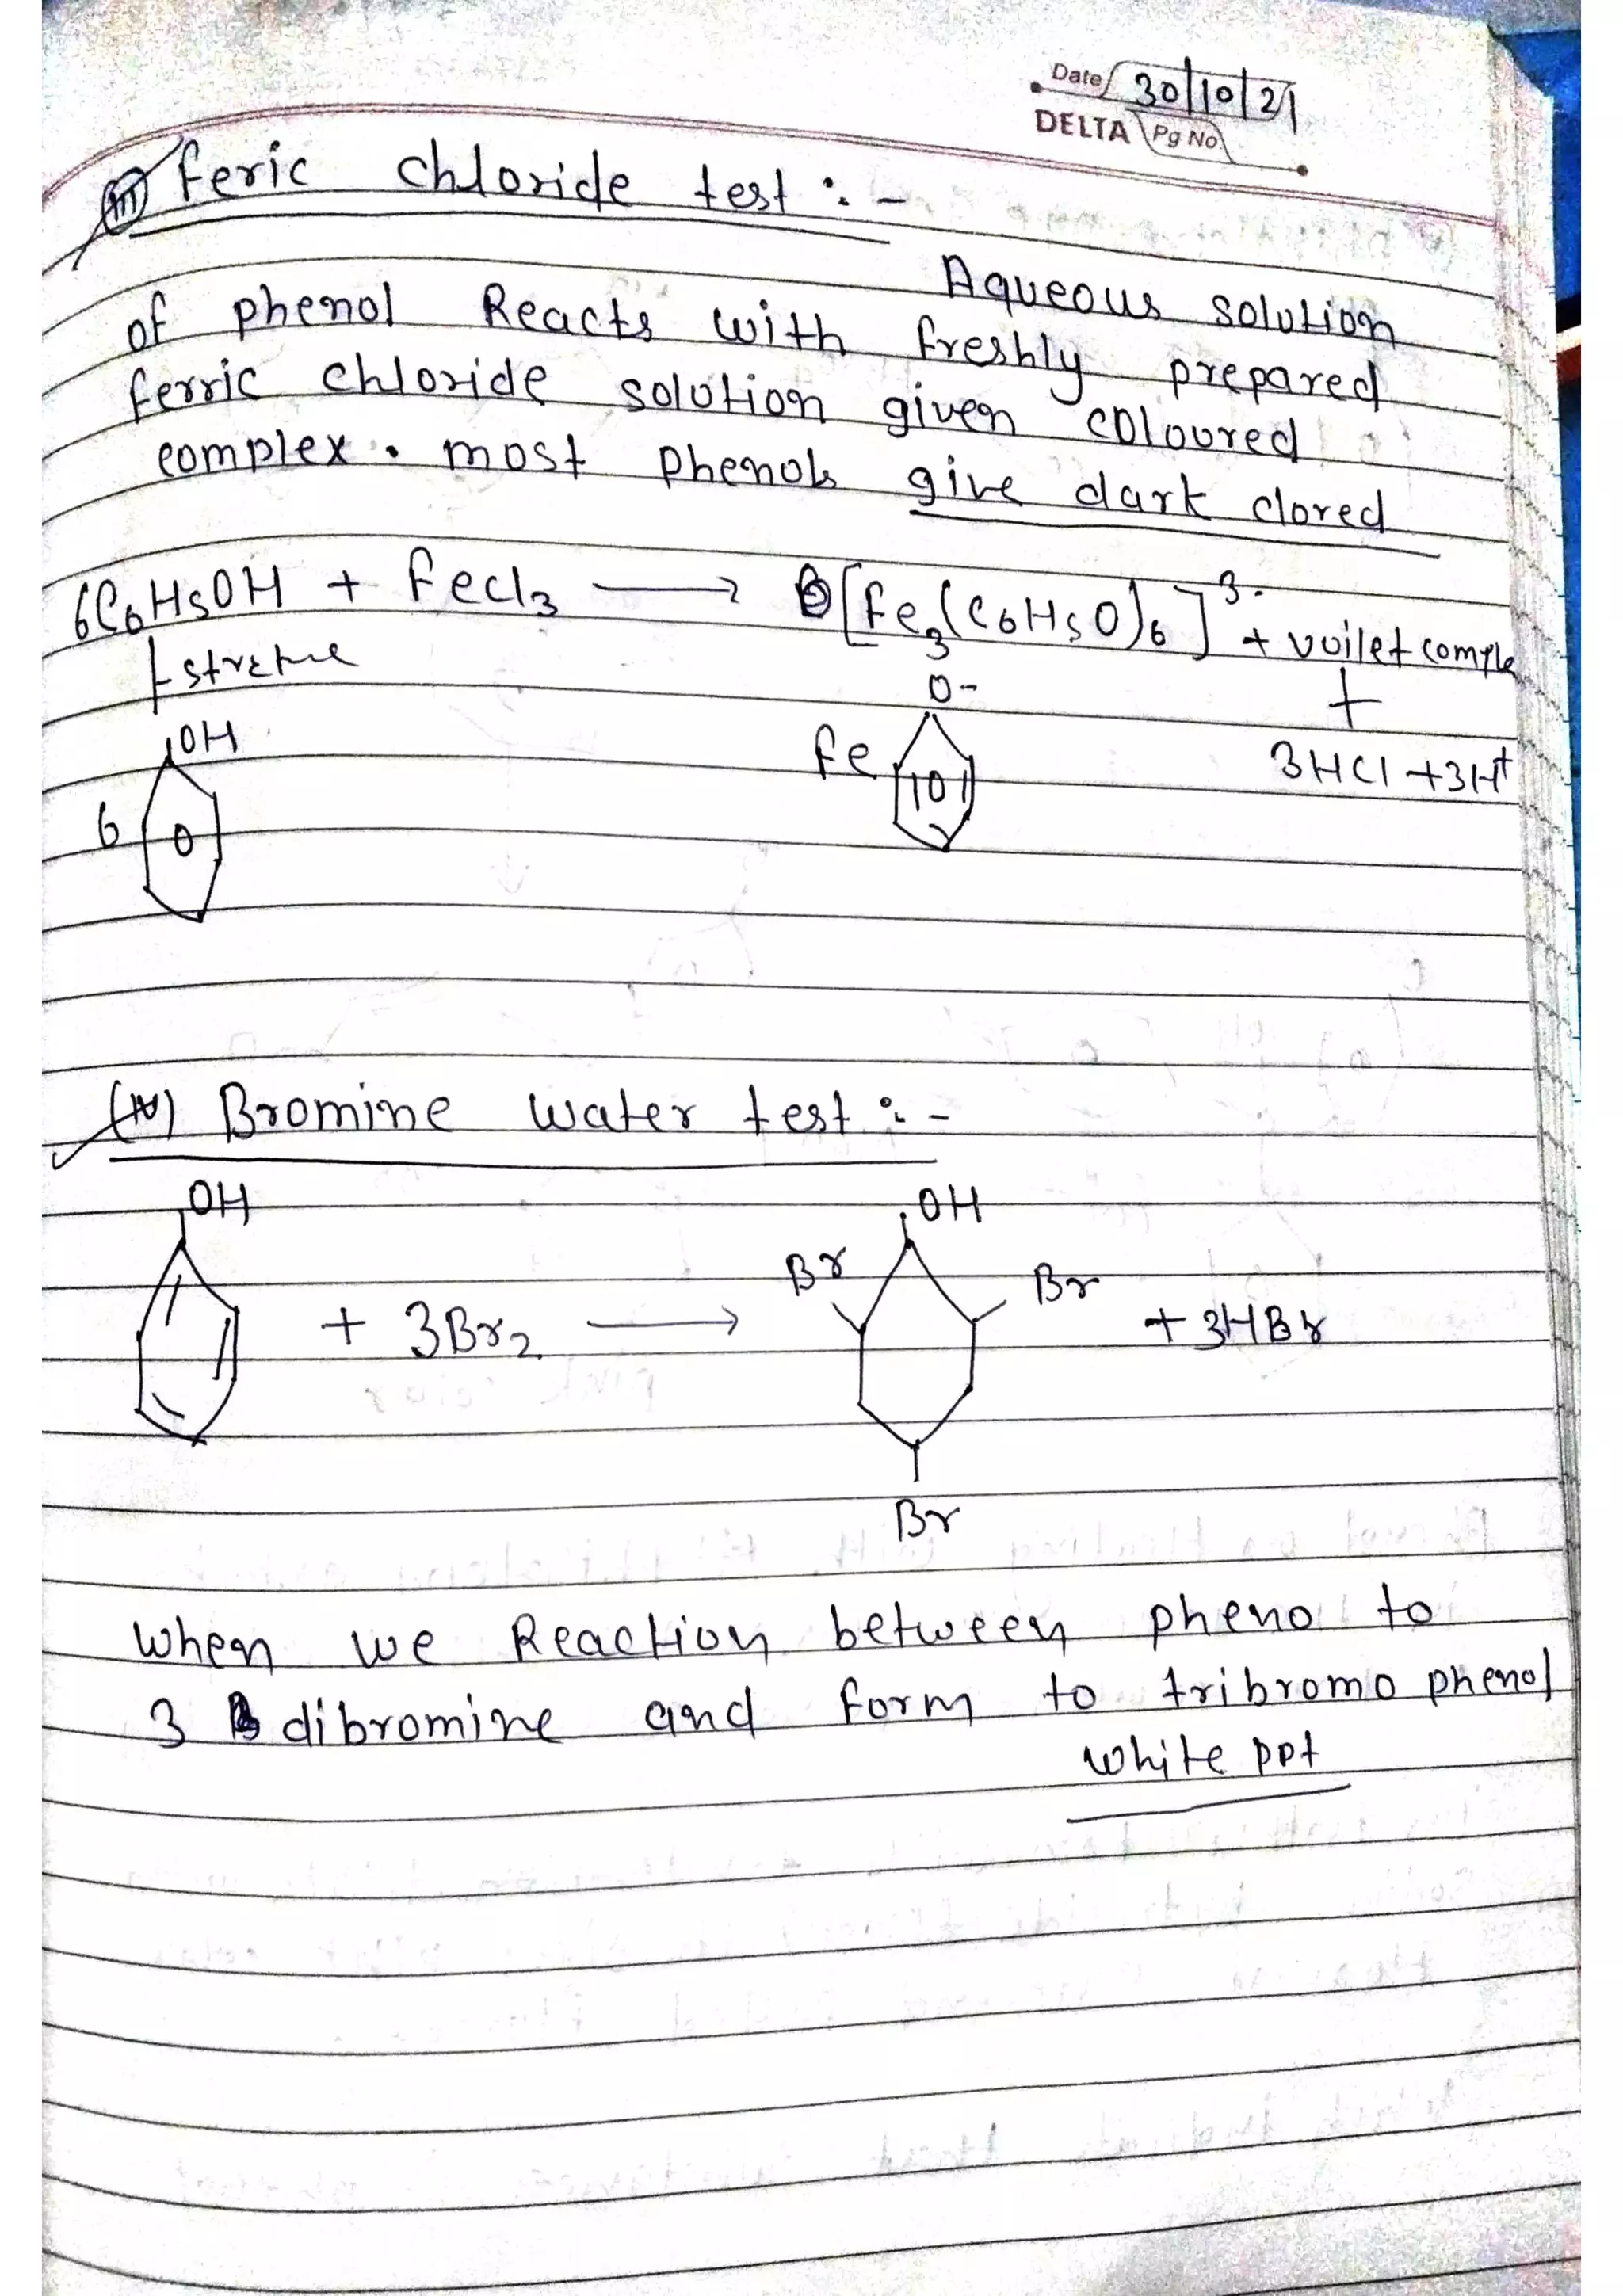 Date 30/10/21
DELTA Pg No.
(iii) feric chloride test :-
Aqueous solution
of phenol Reacts with freshly prepared
ferric chloride solution given coloured
complex. most phenols give dark clored
6C6H5OH + FeCl3 ⟶ [Fe3(C6H5O)6]3- + voilet comple
+
3HCl + 3H+
OH
6
O-
Fe
(iv) Bromine water test :-
OH
+ 3Br2 ⟶
OH
Br
Br
Br
+ 3HBr
when we Reaction between pheno to
3 dibromine and form to tribromo phenol
white ppt